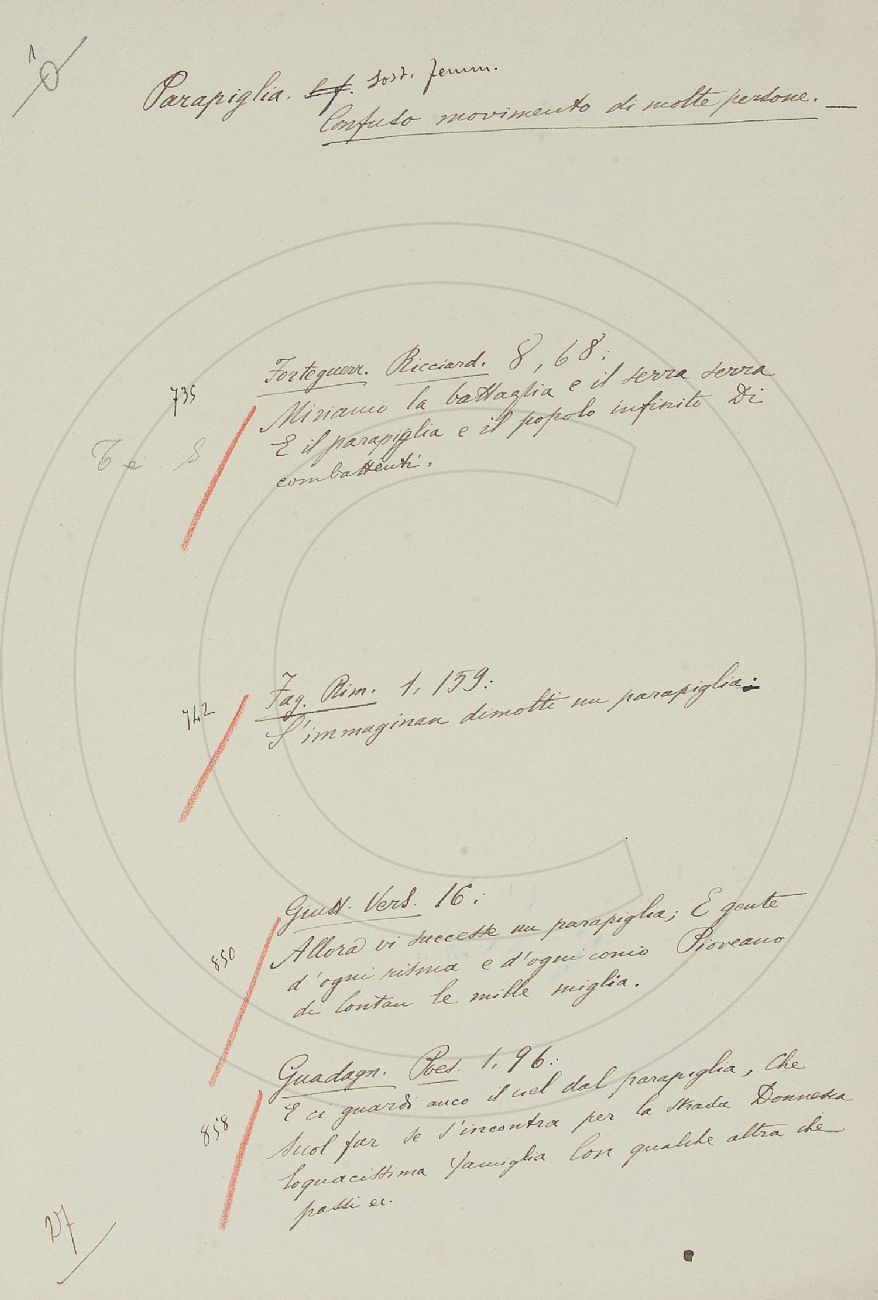 1
Parapiglia. S. f. Sost. femm.
Confuso movimento di molte persone. —
Forteguerr. Ricciard. 8, 68:
735
Miriamo la battaglia e il serra serra
E il parapiglia e il popolo infinito Di
T e S
combattenti.
Fag. Rim. 1, 159:
742
S'immaginan dimolti un parapiglia:
Giust. Vers. 16:
Allora vi successe un parapiglia; E gente
850
d'ogni risma e d'ogni conio Pioveano
di lontan le mille miglia.
Guadagn. Poes. 1, 96:
E ci guardi anco il ciel dal parapiglia, Che
858
Suol far se s'incontra per la strada Donnesca
loquacissima famiglia Con qualche altra che
passi ec.
27